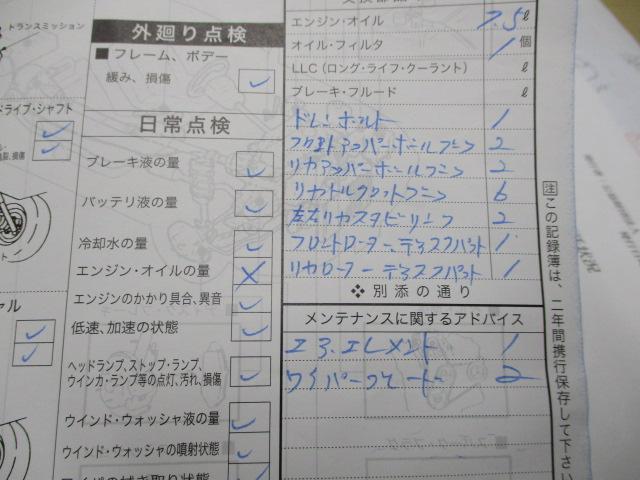 トランスミッション
外廻り点検
■フレーム、ボデー
緩み、損傷 ✓
ドライブ・シャフト
✓
✓
日常点検
ブレーキ液の量 ✓
バッテリ液の量 ✓
冷却水の量 ✓
エンジン・オイルの量 ✗
エンジンのかかり具合、異音 ✓
低速、加速の状態 ✓
✓
✓
ヘッドランプ、ストップ・ランプ、
ウインカ・ランプ等の点灯、汚れ、損傷 ✓
ウインド・ウォッシャ液の量 ✓
ウインド・ウォッシャの噴射状態 ✓
エンジン・オイル 7.5 ℓ
オイル・フィルタ 1 個
LLC(ロング・ライフ・クーラント) ℓ
ブレーキ・フルード ℓ
ドレンボルト 1
2
リヤアッパーホールフニン 2
6
左右リヤスタビリンク 2
フロントローター ディスクパット 1
リヤローター ディスクパット 1
❖別添の通り
メンテナンスに関するアドバイス
エア.エレメント 1
ワイパーブレード 2
注 この記録簿は、二年間携行保存して下さい